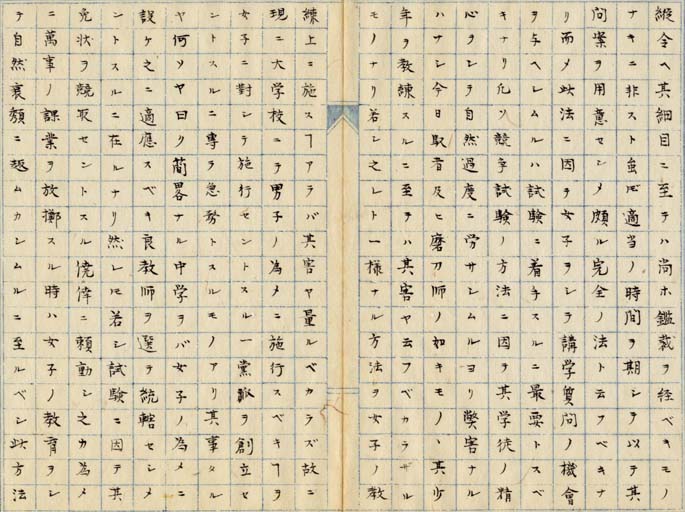 縦令ヘ其細目ニ至テハ尚ホ鑑裁ヲ経ベキモノ
ナキニ非スト虽𪜈適当ノ時間ヲ期シテ以テ其
問案ヲ用意セシメ頗ル完全ノ法ト云フベキナ
リ而メ此法ニ因テ女子ヲシテ講学質問ノ機會
ヲ与ヘシムルハ試験ニ着手スルニ最要トスベ
キナリ凡ソ競争試験ノ方法ニ因テ其学徒ノ精
心ヲシテ自然過度ニ労サシムルヨリ弊害ナル
ハナシ今日馭者及ヒ磨刀師ノ如キモノヽ其少
年ヲ教練スルニ至テハ其害ヤ云フベカラザル
モノナリ若シ之レト一様ナル方法ヲ女子ノ教
練上ニ施スヿアラバ其害ヤ量ルベカラズ故ニ
現ニ大学校ニテ男子ノ為メニ施行スベキヿヲ
女子ニ對シテ施行セントスル一黨派ヲ創立セ
ントスルニ専ラ急務トスルモノアリ其事タル
ヤ何ソヤ曰ク簡畧ナル中学ヲバ女子ノ為メニ
設ケ之ニ適應スベキ良教師ヲ選テ統轄セシメ
ントスルニ在ルナリ然レ𪜈若シ試験ニ因テ其
免状ヲ競取セントスル僥倖ニ頼動シ之カ為メ
ニ萬事ノ課業ヲ放擲スル時ハ女子ノ教育ヲシ
テ自然衰頽ニ趣ムカシムルニ至ルベシ此方法